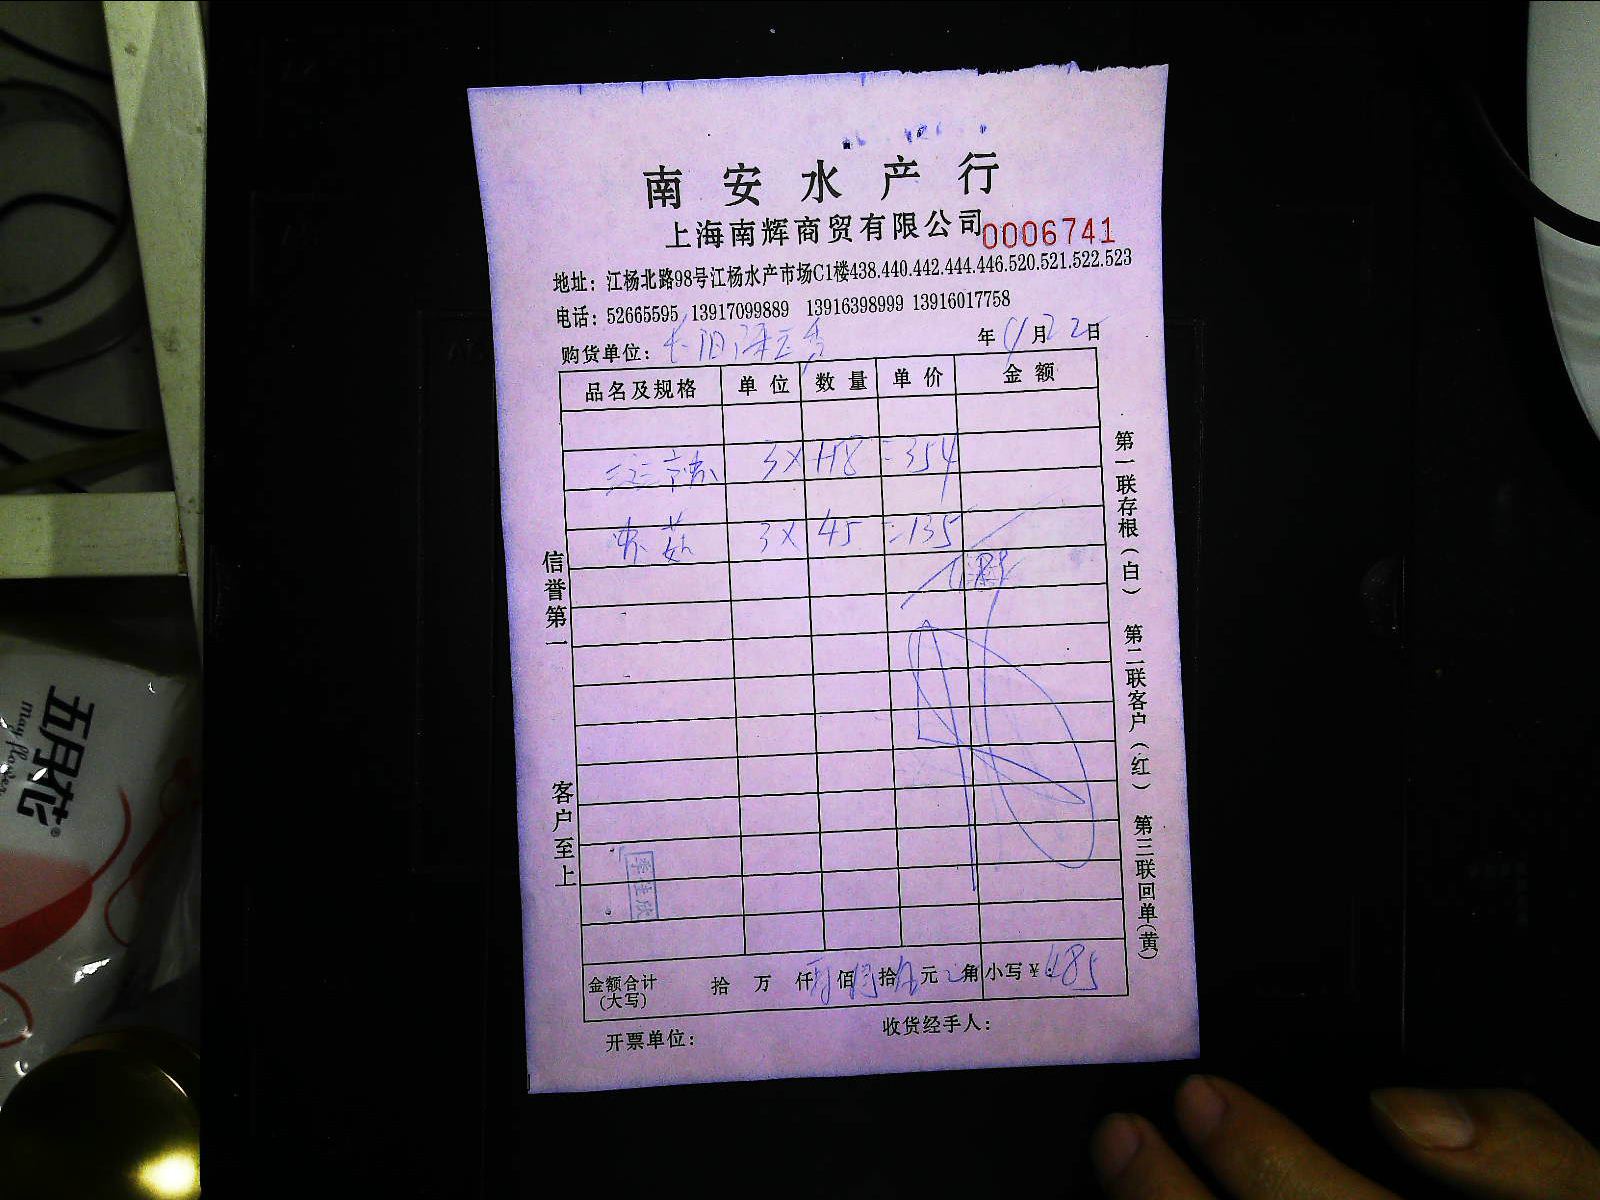 南安水产行
上海南辉商贸有限公司 0006741
地址：江杨北路98号江杨水产市场C1楼438.440.442.444.446.520.521.522.523
电话：52665595 13917099889 13916398999 13916017758
购货单位： 年 月22日
品名及规格 单位 数量 单价 金额
3X 118 =354
3X 45 =135
信誉第一
客户至上
第一联存根（白）
第二联客户（红）
第三联回单（黄）
李佳欣
金额合计（大写） 拾 万 仟 佰 拾 元 角 小写￥：485
开票单位： 收货经手人：
五月花®
may flower